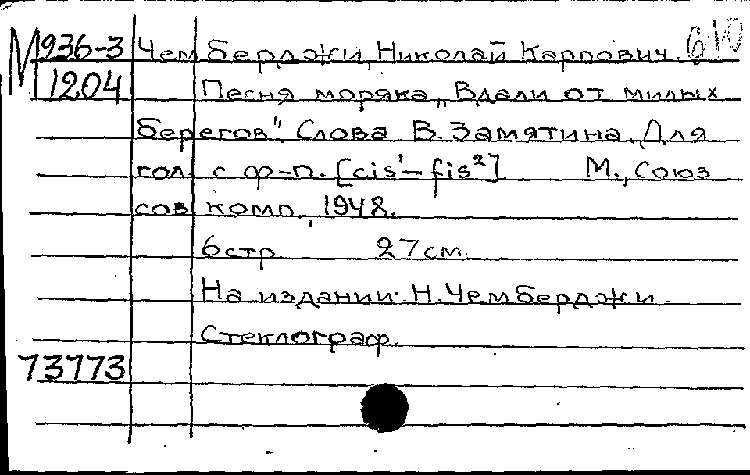 М 936-3 Чемберджи, Николай Карпович. 610
1204 Песня моряка „Вдали от милых
берегов". Слова В. Замятина. Для
гол. с ф-п. [cis¹-fis²] М., Союз
сов. комп., 1948.
6 стр. 27 см.
На издании: Н. Чемберджи
Стеклограф.
73773